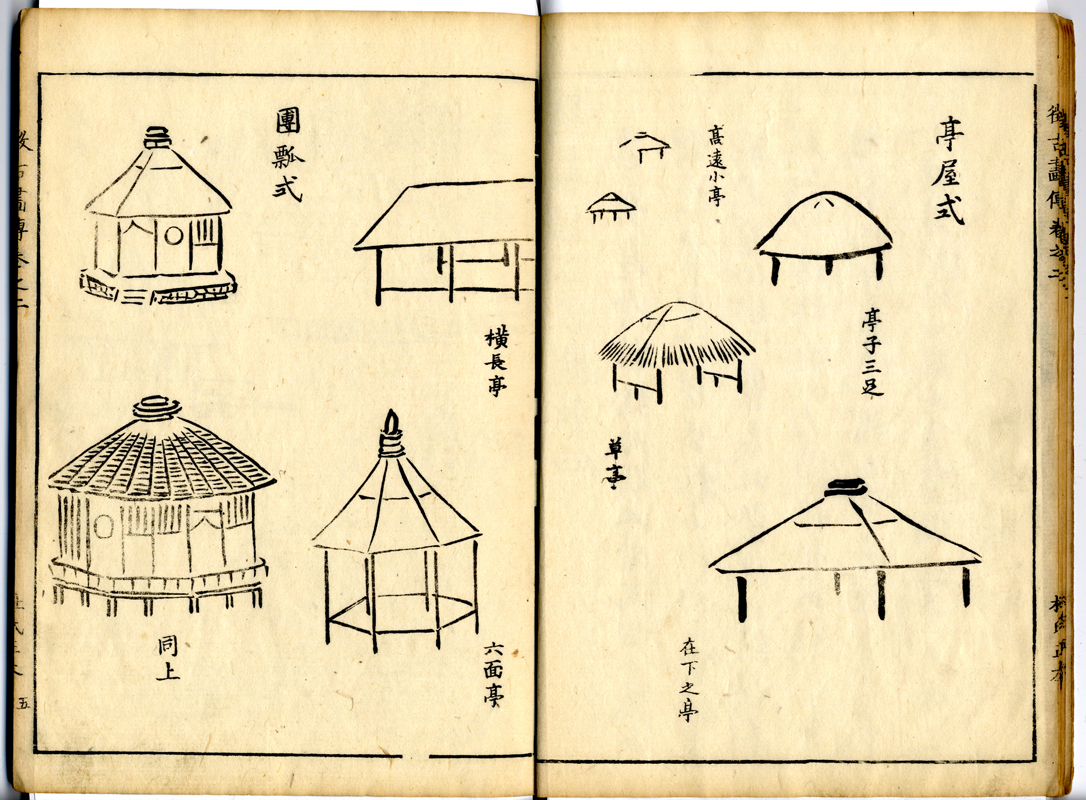 古畫傳卷之二
亭屋式
亭子三足
髙遠小亭
草亭
在下之亭
横長亭
六面亭
團瓢式
同上
五